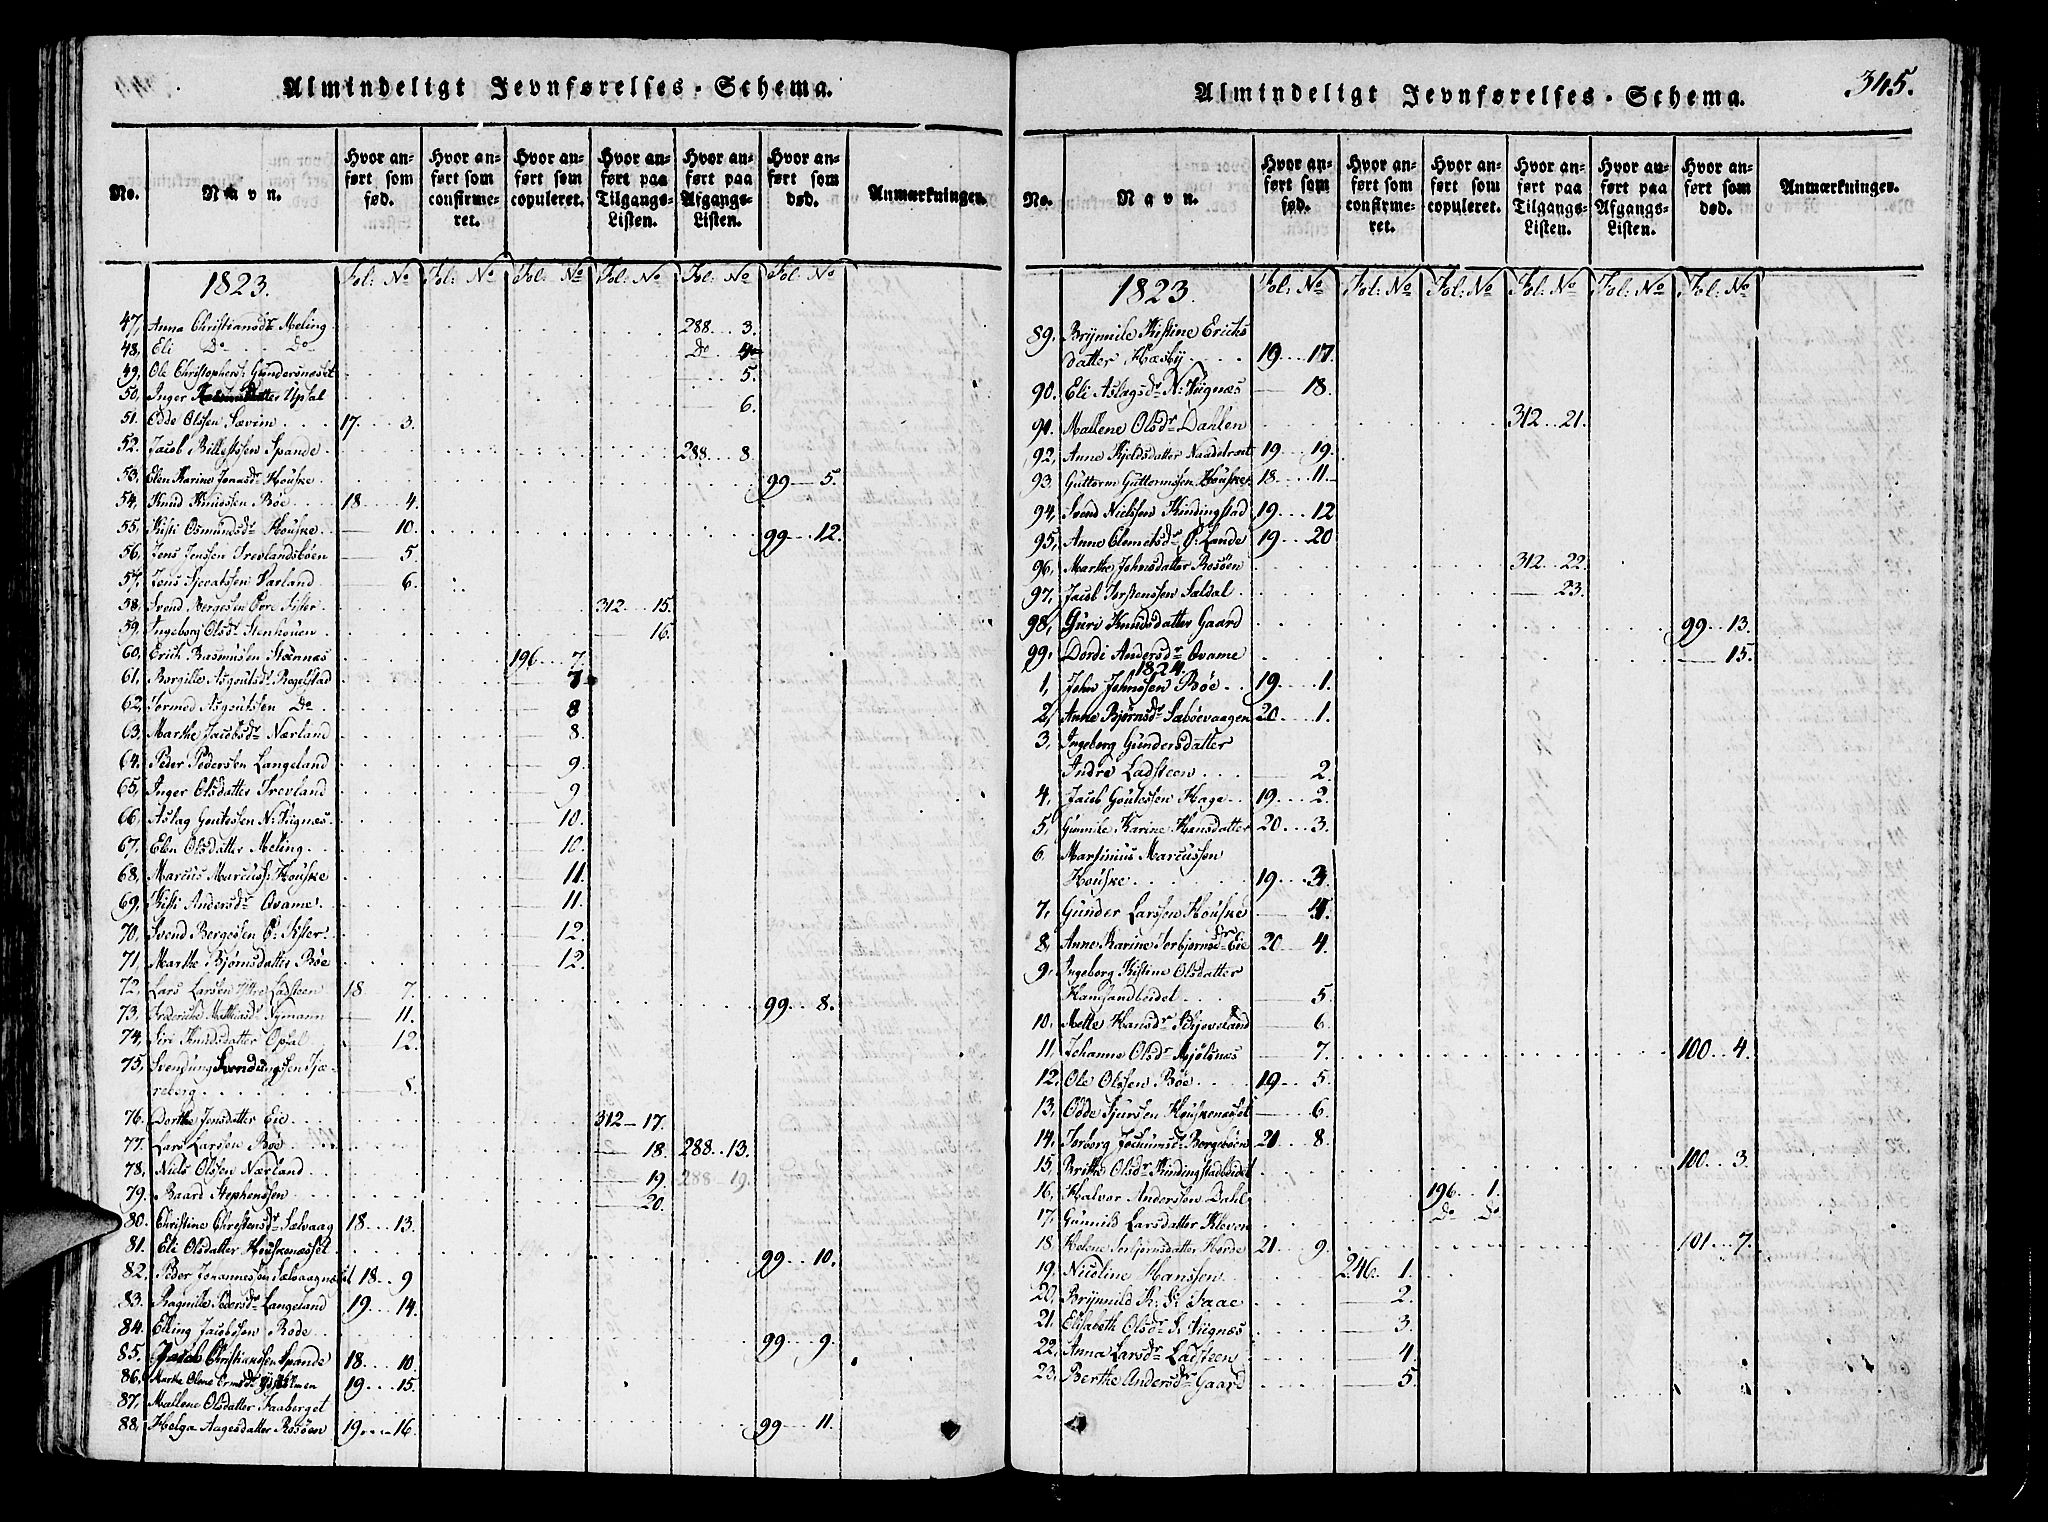 Almindeligt Jevnførelses-Schema.
No. Navn. Hvor anført som fød. Hvor anført som confirmeret. Hvor anført som copuleret. Hvor anført paa Tilgangs-Listen. Hvor anført paa Afgangs-Listen. Hvor anført som død. Anmærkninger.
1823. Fol: No Fol: No Fol: No Fol: No Fol: No Fol: No
47, Anna Christiansdr Meling 288 3.
48, Eli Do Do Do 4
49, Ole Christophers: Gundersnæset 5.
50, Inger Upsal 6.
51. Odde Olssen Sævim 17 3.
52. Jacob Billestssen Spande 288 8.
53. Elen Karine Jonasdr Houske 99 5.
54, Knud Knudssen Bøe 18 4.
55, Kisti Osmundsdr Houske 10. 99 12.
56, Jens Jenssen Trevlandsbøen 5.
57, Jens Varland 6.
58. Svend Bergesen Øvre Kister 312 15.
59, Ingeborg Olsdr Stenhouen 16.
60, Erich Rasmussen Stoennæs 196 7.
61, Borgille Asgoutsdr Regelstad 7
62, Tormod Asgoutssen Do 8
63, Marthe Jacobsdr Nærland 8.
64. Peder Pedersen Langeland 9.
65, Inger Olsdatter Trevland 9
66, Aslag Goutesen N: Vignæs 10.
67. Elen Olsdatter Meling 10.
68, Marcus Marcuss: Houske 11.
69, Kisti Andersdr Ovame 11.
70, Svend Bergessen Ø: Kister 12.
71, Marthe Bjørnsdatter Bøe 12.
72, Lars Larsen Yttre Ladsteen 18 7. 99 8.
73, Frederiche Mathiasdr Nymann 11.
74, Siri Knudsdatter Opsal 12.
75, Svendung Svendungssen Tjæ-
reborg 8.
76. Dorthe Jensdatter Eie 312 17.
77. Lars Larssen Bøe 18. 288 13.
78, Niels Olssen Nærland 19. 288 19.
79. Baard Stephenssen 20.
80. Christine Christensdr Sælvaag 18 13.
81. Eli Olsdatter Houskenæsset 99 10.
82. Peder Johannessen Sælvaagnæset 18 9
83. Ragnille Pedersdr Langeland 19 14.
84. Elling Jacobssen Bode 99 9.
85. Jacob Christianssen Spande 18 10.
86. Marthe Olene Ormsdr 19 15.
87. Mallene Olsdatter Faaberget
88. Helga Aagesdatter Rosøen 19 16. 99 11.
Almindeligt Jevnførelses-Schema. 345.
No. Navn. Hvor anført som fød. Hvor anført som confirmeret. Hvor anført som copuleret. Hvor anført paa Tilgangs-Listen. Hvor anført paa Afgangs-Listen. Hvor anført som død. Anmærkninger.
1823. Fol: No Fol: No Fol: No Fol: No Fol: No Fol: No
89. Brynnile Kistine Ericks
datter Hæsby 19 17.
90. Eli Aslagsdr N: Vignæs 18.
91. Mallene Olsdr Dahlen 312 21.
92, Anne Kjeldsdatter Naadebræt 19 19.
93. Guttorm Guttormssen Houske 18 11.
94, Svend Nielssen Kindingstad 19 12
95, Anne Clemetsdr Ø: Lande 19 20
96, Marthe Johnsdatter Rosøen 312 22.
97, Jacob Torstenssen Sældal 23.
98, Guri Knudsdatter Gaard 99 13.
99, Dordi Andersdr Ovame 15.
1824.
1, John Johnssen Bøe 19 1.
2, Anne Bjørnsdr Sæbøevaagen 20 1.
3, Ingeborg Gundersdatter
Indre Ladsteen 2.
4, Jacob Goutessen Hage 19 2.
5, Gunnile Karine Hansdatter 20 3.
6. Martinius Marcussen
Houske 19 3.
7, Gunder Larssen Houske 4.
8, Anne Karine Torbjørnsdr Eie 20 4.
9, Ingeborg Kistine Olsdatter
Kamsandbeidet 5.
10, Mette Hansdr Schjeveland 6.
11. Johanne Olsdr Mjølsnæs 7. 100 4.
12, Ole Olssen Bøe 19 5.
13, Odde Sjurssen Houskenæset 6.
14, Torborg Jochumsd: Borgebøen 21 8.
15, Britha Olsdr Kindingstadbeidet 100 3.
16, Halvor Anderssen Dahle 196 1.
17, Gunnild Larsdatter Kleven Do Do
18. Helene Torbjørnsdatter Hørde 21 9. 101 7.
19, Nicoline Hanssen 246 1.
20, Brynnild K: S: Faae 2.
21, Elisabeth Olsdr S: Vignæs 3.
22, Anna Larsdr Ladsteen 4.
23. Berthe Andersdr Gaard 5.